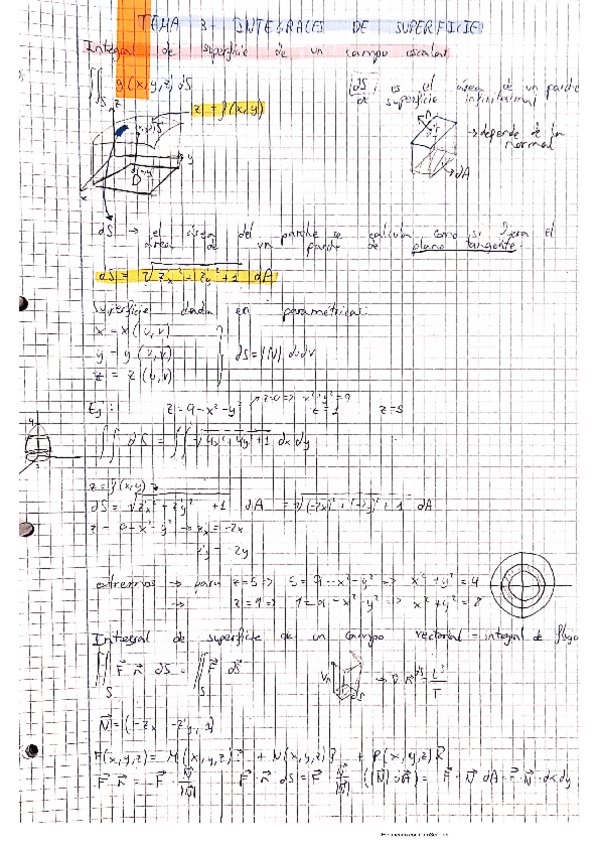 TEMA 3: INTEGRALES DE SUPERFICIE
Integral de superficie de un campo escalar
∬_S g(x,y,z) dS
dS: es el área de un parche
de superficie infinitesimal
z = f(x,y)
→ depende de la
normal
dA
dS → el área del parche se calcula como si fuera el
área de un parche de plano tangente.
dS = √(z_x² + z_y² + 1) dA
Superficie dada en paramétricas:
x = x(u,v)
y = y(u,v)
z = z(u,v)
dS = |N| du dv
Ej: z = 9 - x² - y² z = 1 z = 5
z=0 => x²+y²=9
∬ 1 dS = ∬ √(4x² + 4y² + 1) dx dy
z = f(x,y)
dS = √(z_x² + z_y² + 1) dA = √((-2x)² + (-2y)² + 1) dA
z = 9 - x² - y² → z_x = -2x
z_y = 2y
extremos → para z=5 => 5 = 9 - x² - y² => x² + y² = 4
→ z=1 => 1 = 9 - x² - y² => x² + y² = 8
Integral de superficie de un campo vectorial = integral de flujo
∬_S F⃗ n⃗ dS = ∬_S F⃗ dS⃗
N⃗ = (-z_x, -z_y, 1)
F(x,y,z) = M(x,y,z)i⃗ + N(x,y,z)j⃗ + P(x,y,z)k⃗
F⃗ n⃗ = F⃗ · N⃗/|N⃗| F⃗ · n⃗ dS = F⃗ N⃗/|N⃗| (|N⃗| dA) = F⃗ · N⃗ dA = F⃗ · N⃗ · dx dy